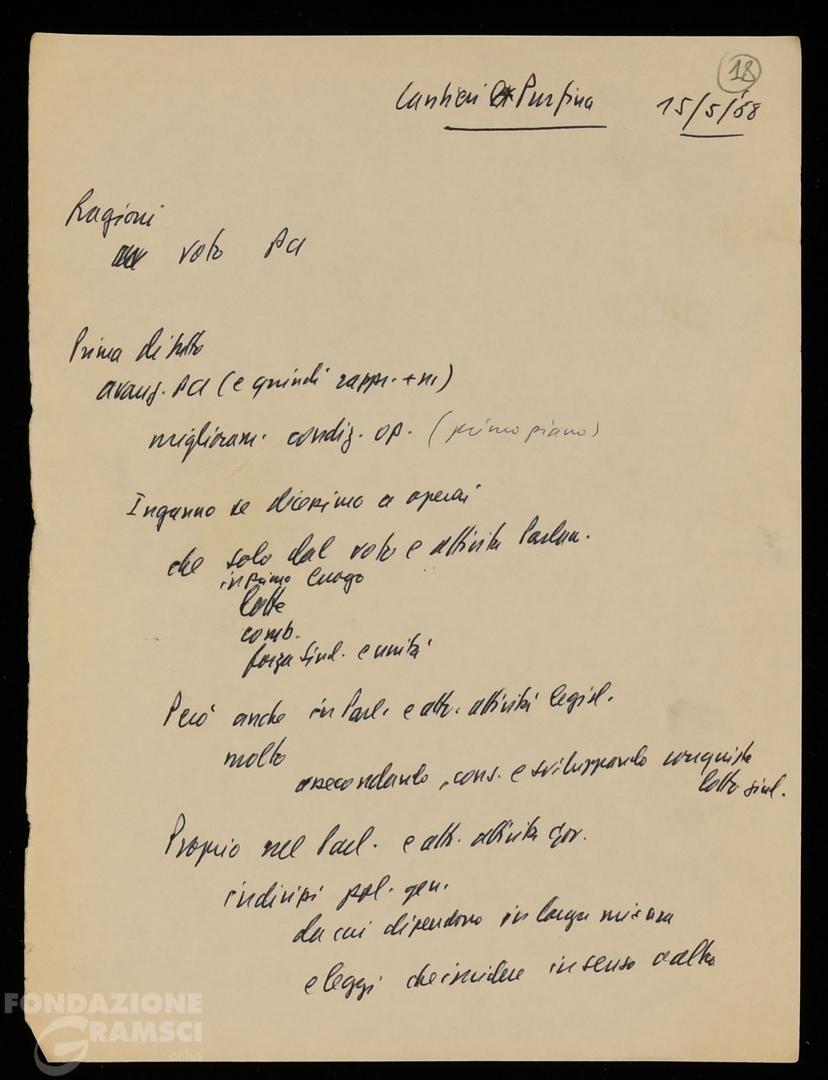 18
Cantieri ex Purfina 15/5/'68
Ragioni
voto PCI
Prima di tutto
avanz. PCI (e quindi rappr.
miglioram. condiz. op. (primo piano)
Inganno se dicessimo a operai
che solo dal voto e attività Parlam.
in primo luogo
lotte
comb.
forza sind. e unità
Però anche in Parl. e attr. attività legisl.
molto
assecondando, cons. e sviluppando conquiste
lotte sind.
Proprio nel Parl. e attr. attività gov.
indirizzi pol. gen.
da cui dipendono in larga misura
e leggi che incidere in senso o altro
FONDAZIONE
GRAMSCI
onlus